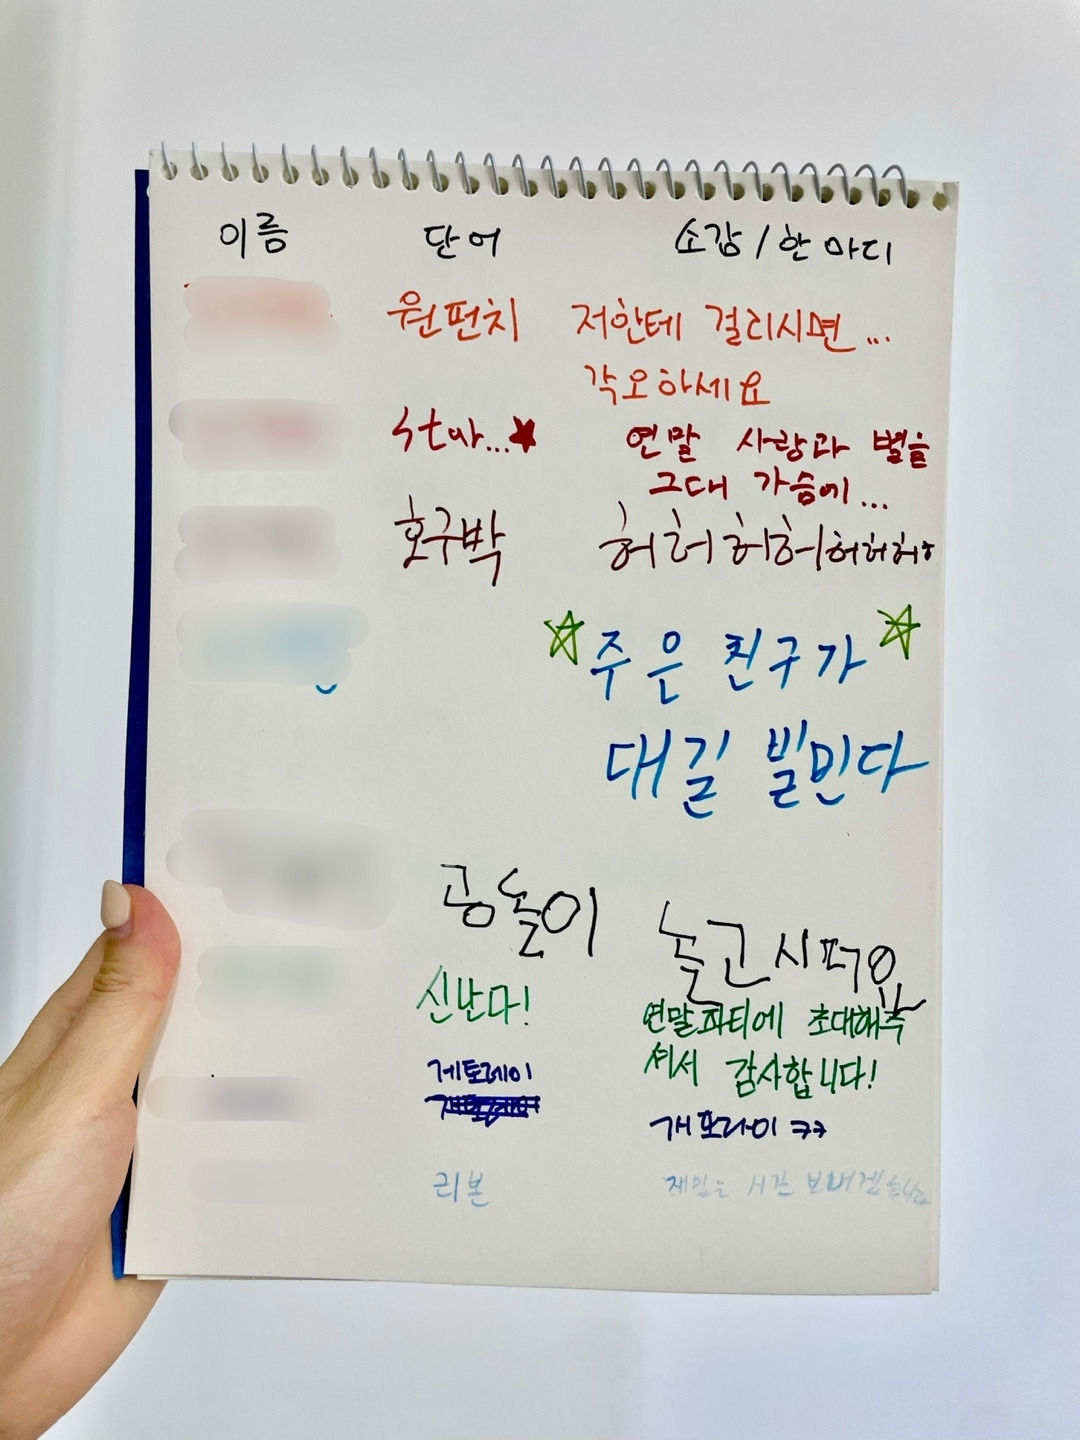 이름 단어 소감 / 한 마디
원펀치 저한테 걸리시면...
각오하세요
연말 사랑과 별을
그대 가슴에...
호구박 허허허허허허허
주은 친구가
대길 빌민다
공돌이
놀고시퍼요
신난다!
연말파티에 초대해주
셔서 감사합니다!
게토레이
개포라이 ㅋㅋ
리본 재밌는 시간 보내겠습니다